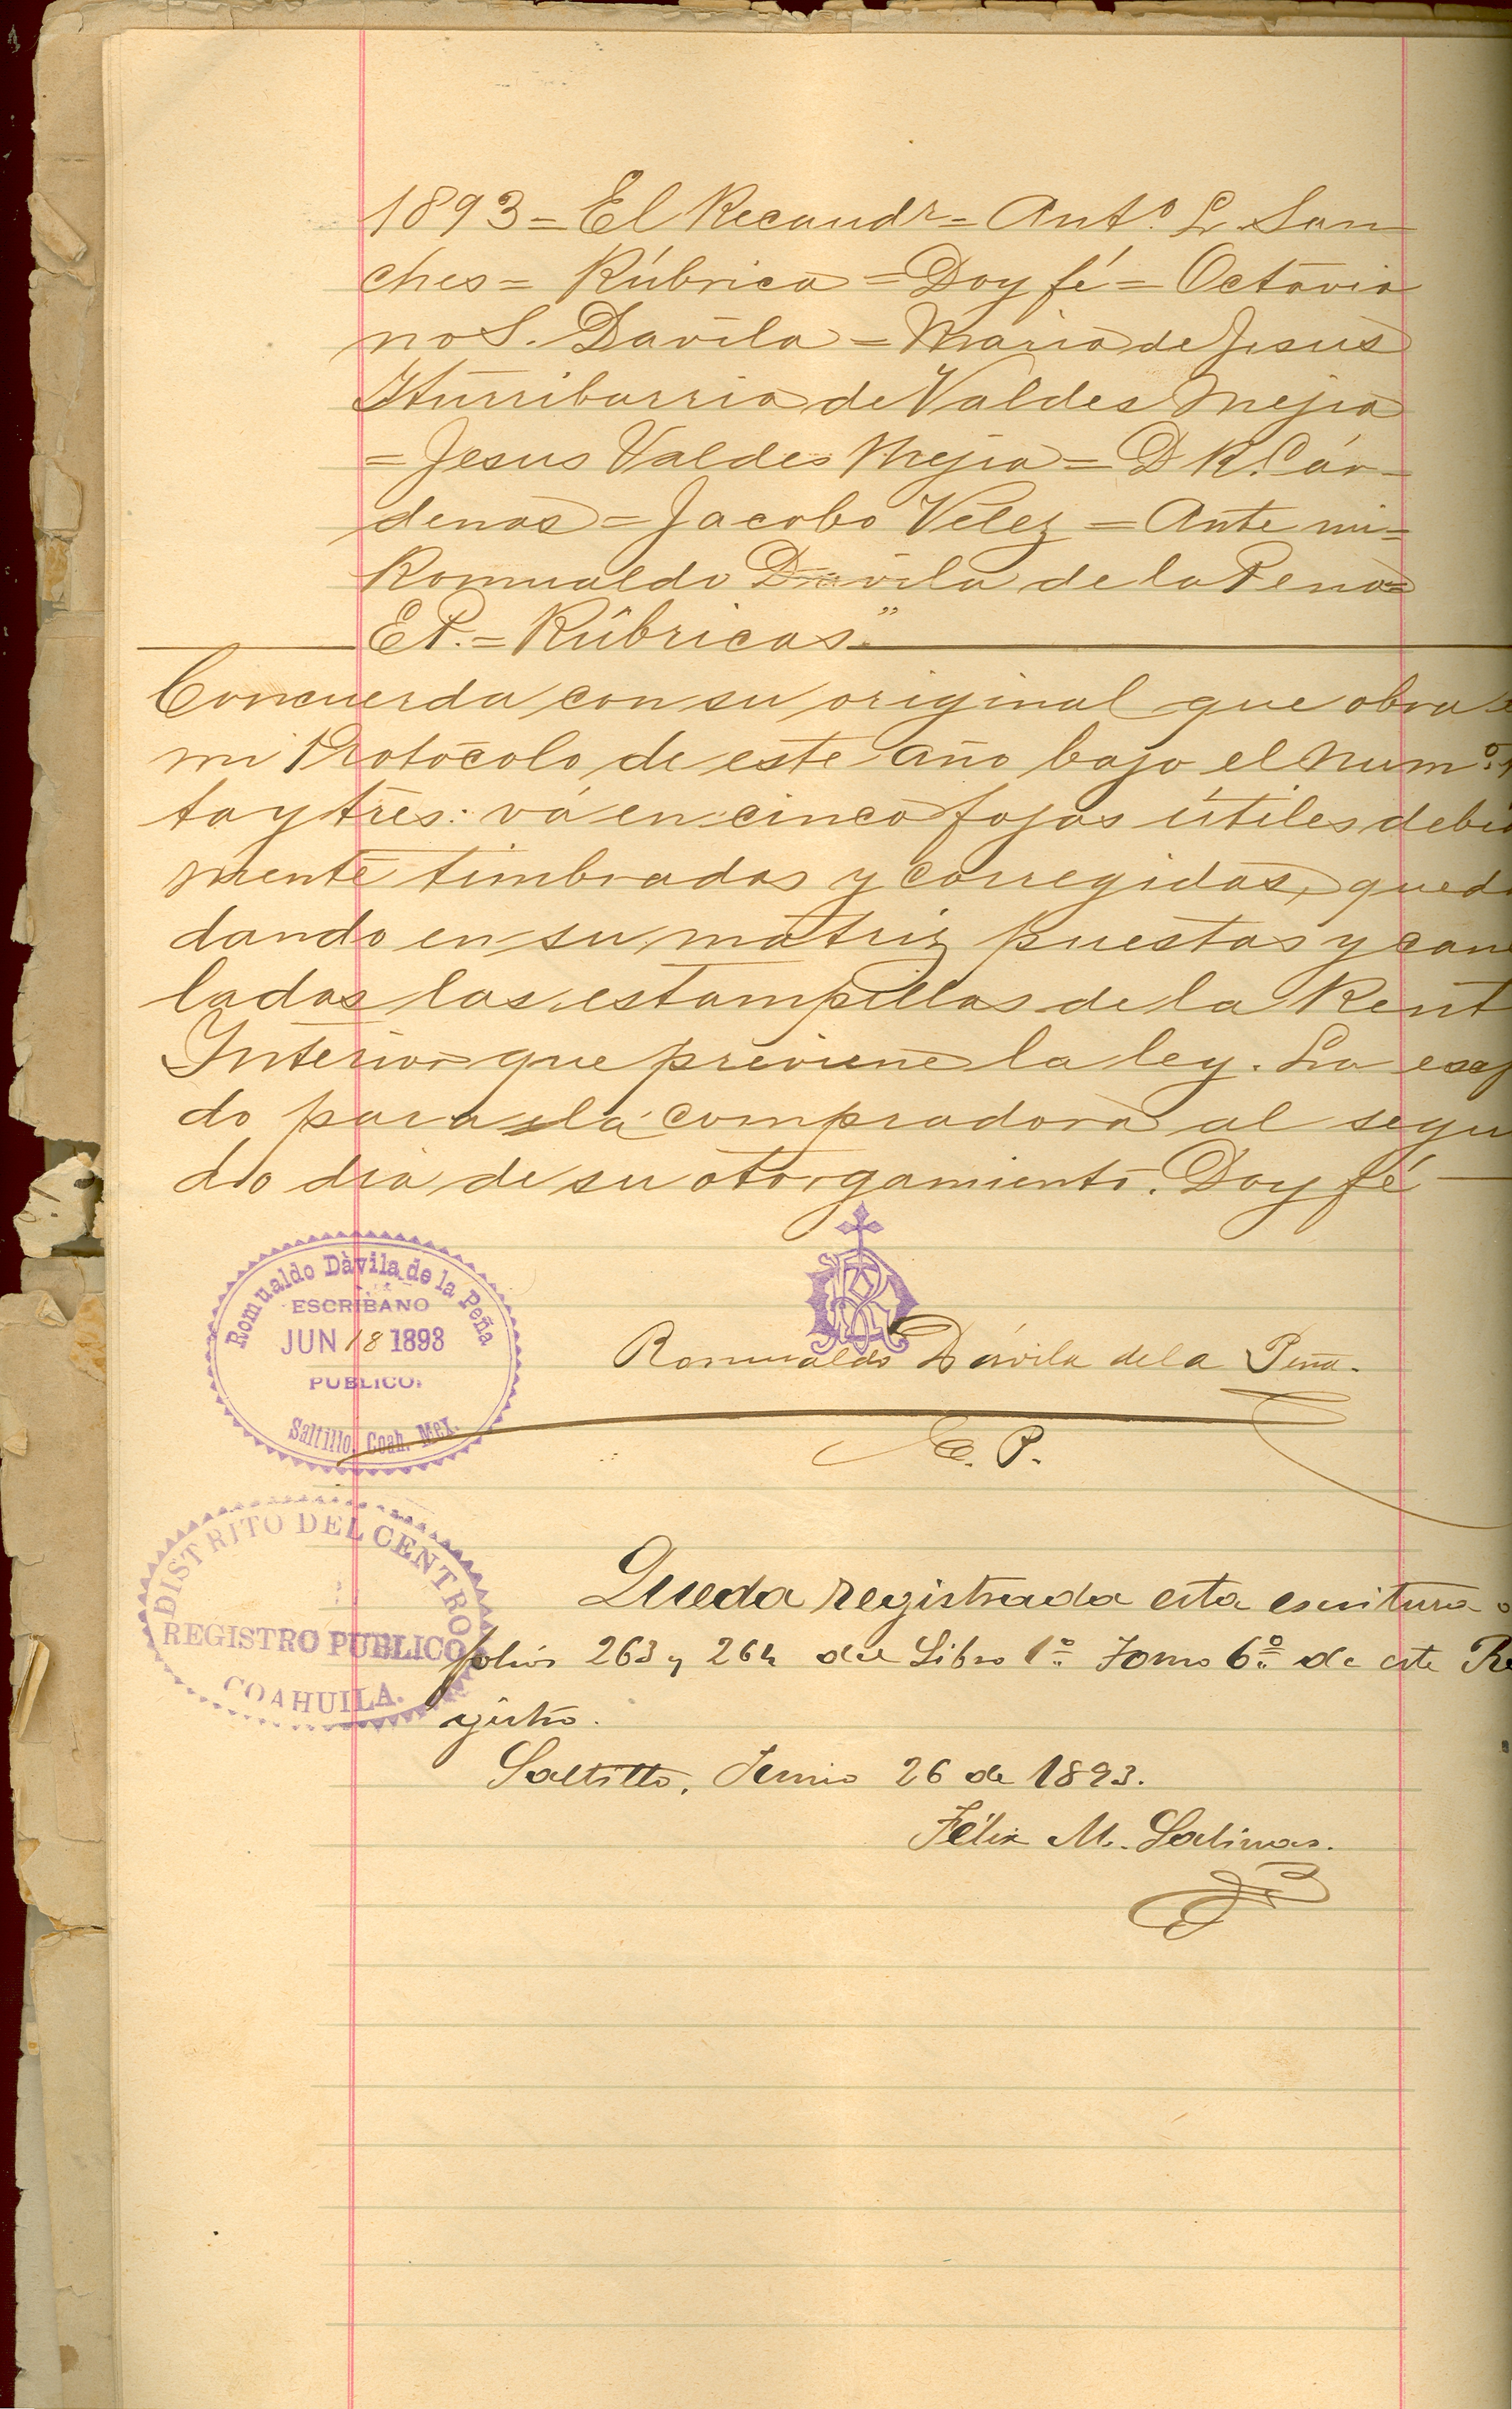 1893 = El Recaudr = Anto. L. San-
ches = Rúbrica = Doy fé = Octavia
no S. Davila = Maria de Jesus
Iturribarria de Valdes Mejia
= Jesus Valdes Mejia = D R. Cár-
denas = Jacobo Vélez = Ante mi =
Romualdo Davila de la Pena =
E P. = Rúbricas."
Concuerda con su original que obra
mi Protocolo de este año bajo el Numo.
ta y tres: vá en cinco fojas útiles debid
mente timbradas y corregidas, queda
dando en su matriz puestas y canc
ladas las estampillas de la Rent
Interior que previene la ley. La
do para la compradora al segun
do dia de su otorgamiento. Doy fé
Romualdo Dàvila de la Peña
ESCRIBANO
JUN 18 1893
PUBLICO.
Saltillo, Coah. Mex.
Romualdo Dávila de la Peña.
E. P.
DISTRITO DEL CENTRO
REGISTRO PUBLICO
COAHUILA.
Queda registrada esta escritura a
folios 263 y 264 del Libro 1o. Tomo 6o. de este Re
gistro.
Saltillo, Junio 26 de 1893.
Félix M. Salinas.